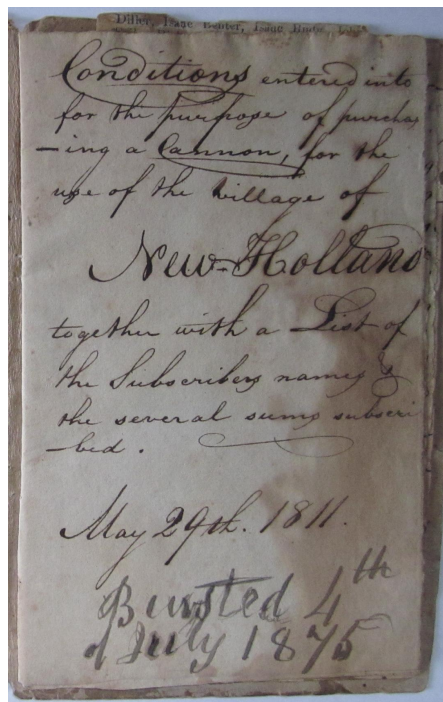 Diller, Isaac
Conditions entered into
for the purpose of purcha
-ing a Cannon, for the
use of the village of
New-Holland
together with a List of
the Subscribers names &
the several sums subscri
-bed.
May 29th. 1811.
Bursted 4th
of July 1875